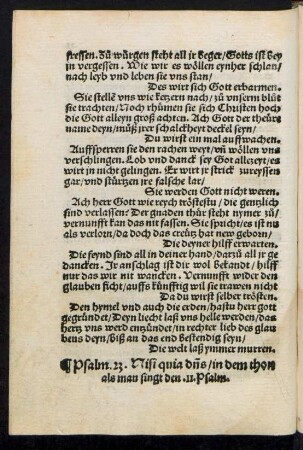 fressen. Zů würgen steht all ir beger/Gotts ist bey
in vergessen. Wie wir es wöllen eynher schlon/
nach leyb vnd leben sie vns stan/
Des wirt sich Gott erbarmen.
Sie stellē vns wie ketzern nach/ zů vnserm blůt
sie trachten/Noch rhümen sie sich Christen hoch
die Gott alleyn groß achten. Ach Gott der theůr
name deyn/můß jrer schalckheyt deckel seyn/
Du wirst ein mal auffwachen.
Auffsperren sie den rachen weyt/vñ wöllen vns
verschlingen. Lob vnd danck sey Got allezeyt/es
wirt jn nicht gelingen. Er wirt jr strick zureyssen
gar/vnd stürtzen jre falsche lar/
Sie werden Gott nicht weren.
Ach herr Gott wie reych tröstestu/ die gentzlich
sind verlassen/Der gnaden thür steht nymer zů/
vernunfft kan das nit fassen. Sie spricht/es ist nů
als verlorn/da doch das creütz hat new geborn/
Die deyner hilff erwarten.
Die feynd sind all in deiner hand/darzů all jr ge
dancken. Jr anschlag ist dir wol bekandt/ hilff
nur das wir nit wancken. Vernunfft wider den
glauben ficht/auffs künfftig wil sie trawen nicht
Da du wirst selber trösten.
Den hymel vnd auch die erden/hastu herr gott
gegründet/Deyn liecht laß vns helle werden/das
hertz vns werd enzündet/in rechter lieb des glau
bens deyn/biß an das end bestendig seyn/
Die welt laß ymmer murren.
¶ Psalm. 23. Nisi quia dñs/in dem thon
als man singt den .11. Psalm.